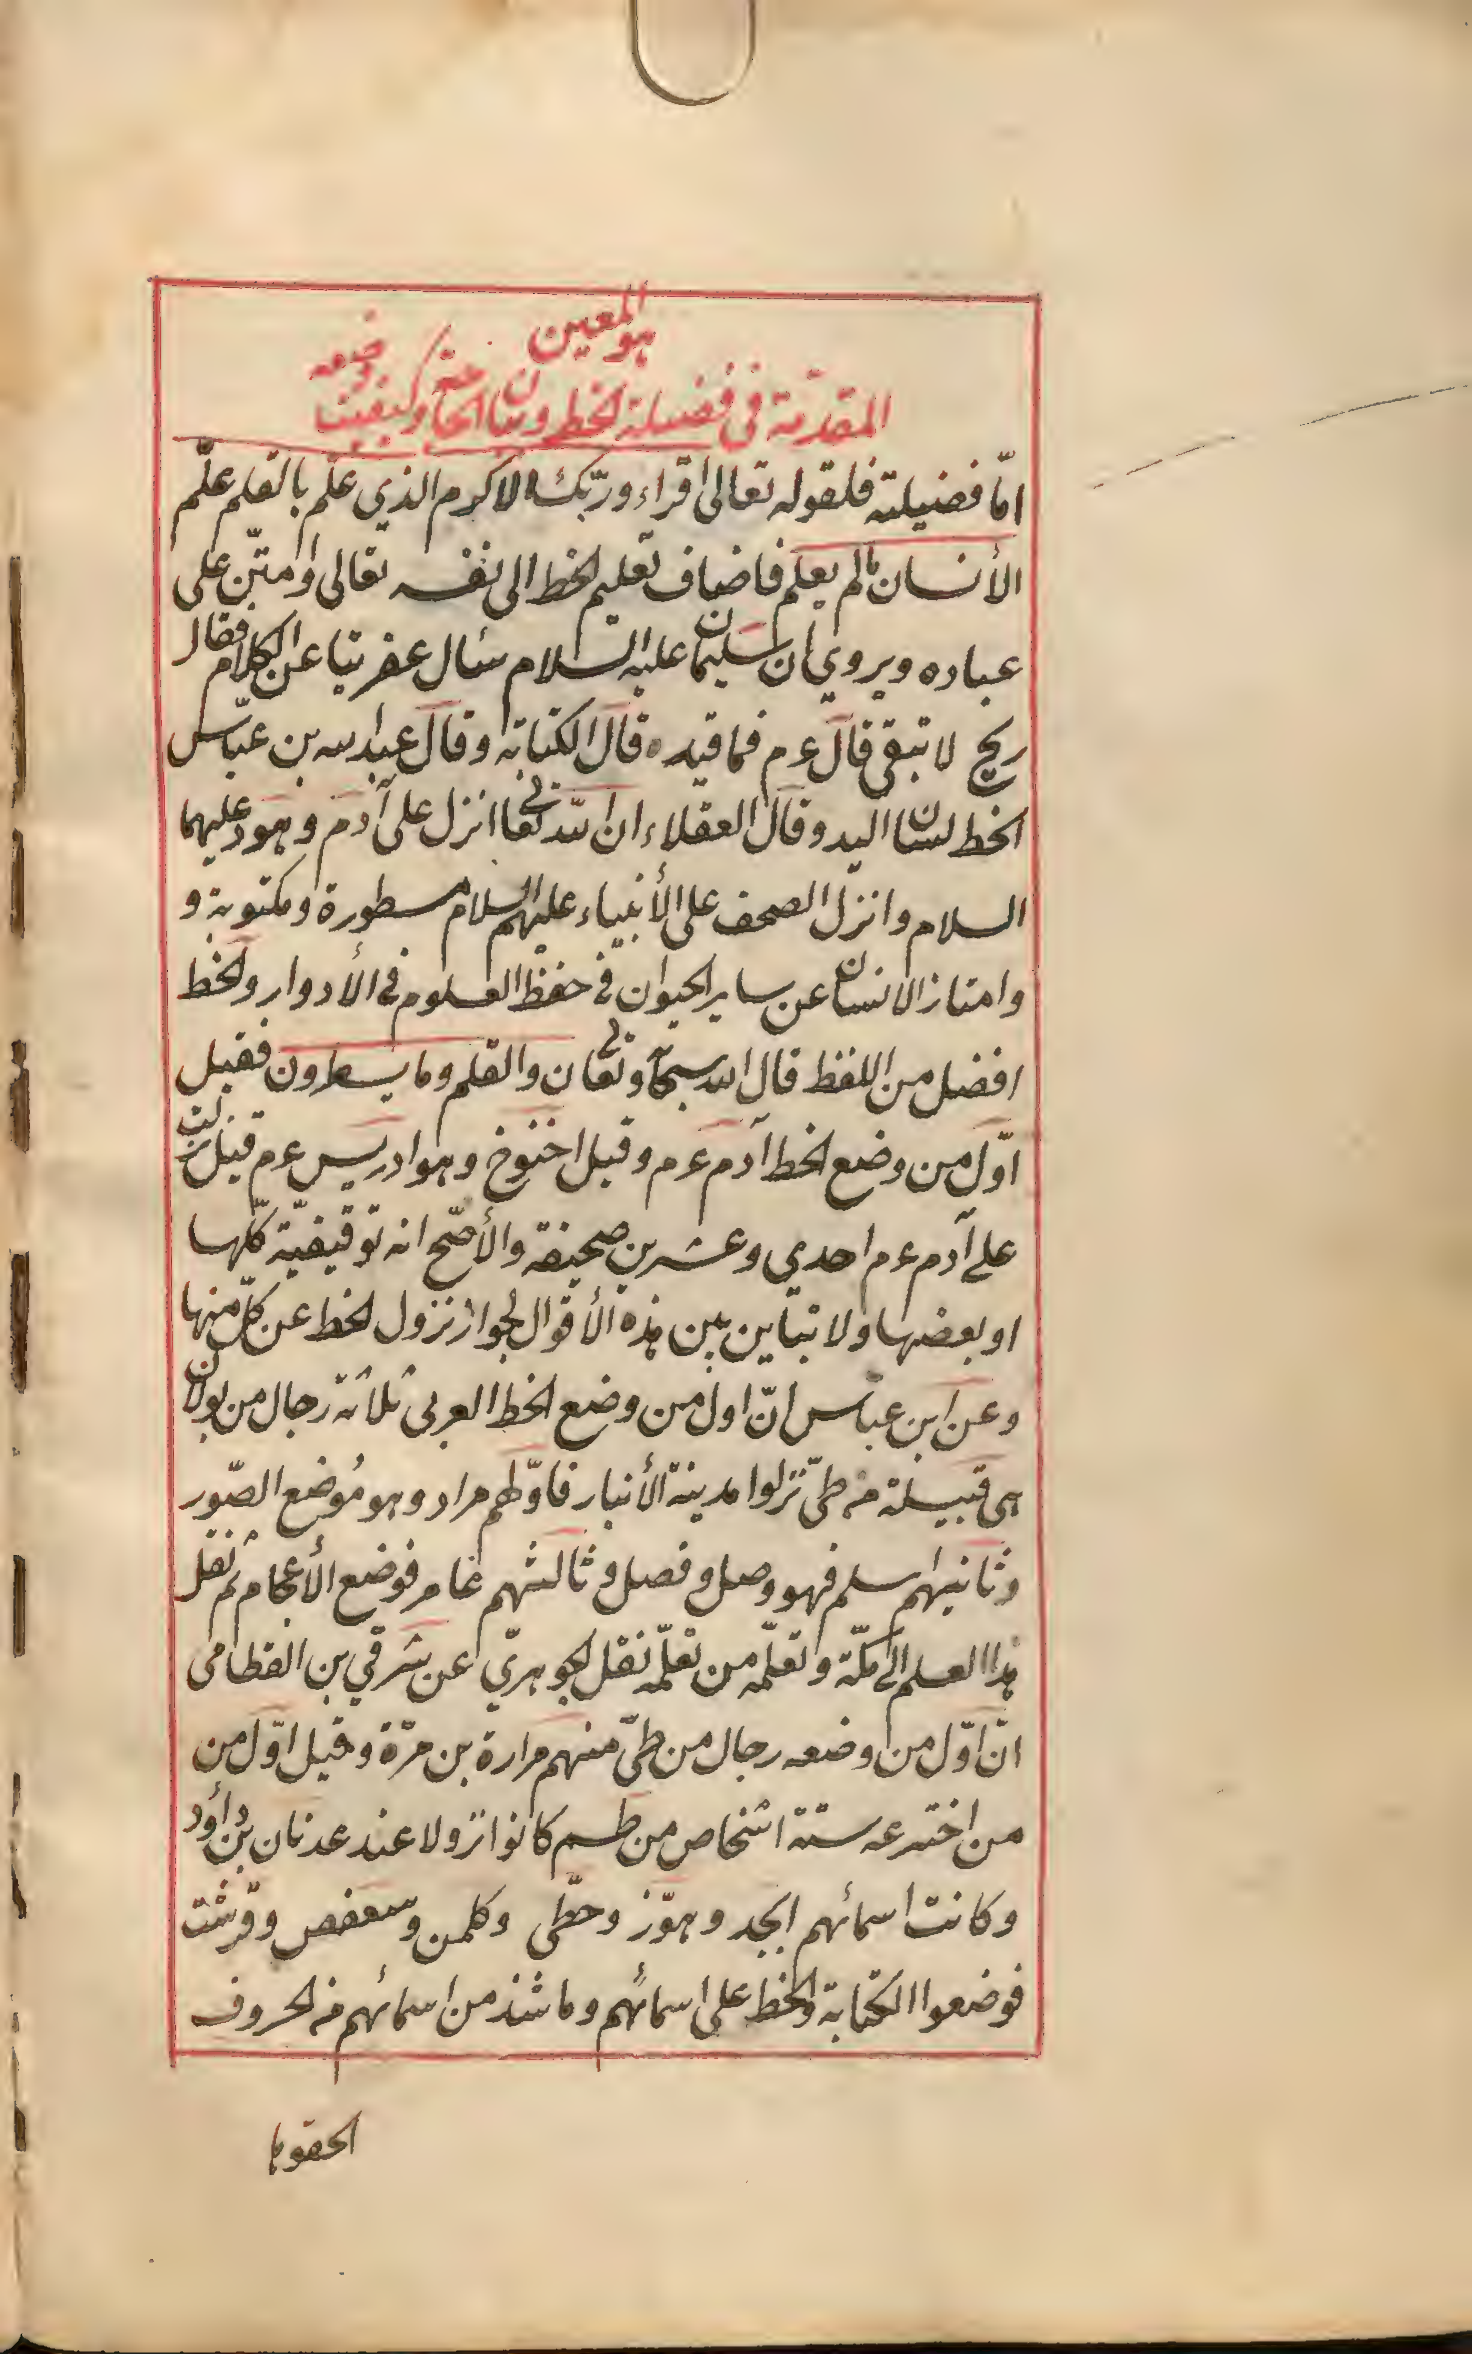 هو المعين
المقدّمة فى فضيلة الخط وبيان الحاجة وكيفية وضعه
امّا فضيلته فلقوله تعالى اقراء وربّك الاكرم الذي علّم بالقلم علّم
الأنسان مالم يعلم فاضاف تعليم الخط الى نفسه تعالى وامتنّ على
عباده ويروي ان سليمان عليه السلام سأل عفريتا عن الكلام فقال
ريح لا تبقى قال عم فما قيده قال الكتابه وقال عبد الله بن عبّاس
الخط لسان اليد وقال العقلاء ان الله تعالى انزل على آدم وهود عليهما
السلام وانزل الصحف على الأنبياء عليهم السلام مسطورة ومكتوبة و
وامتاز الانسان عن ساير الحيوان في حفظ العلوم فى الأدوار والخط
افضل من اللفظ قال الله سبحانه وتعالى ن والقلم وما يسطرون فقيل
اوّل من وضع الخط آدم عم وقيل اخنوخ وهو ادريس عم قيل نزلت
على آدم عم احدي وعشرين صحيفة والأصّح انه توقيفيّة كلّها
او بعضها ولا تباين بين هذه الأقوال لجواز نزول الخط عن كلّ منها
وعن ابن عباس انّ اول من وضع الخط العربى ثلاثة رجال من بولان
هى قبيلة من طىّ نزلوا مدينة الأنبار فاوّلهم مراد وهو مُوضع الصّور
وثانيهم اسلم فهو وصل وفصل وثالثهم عامر فوضع الأعجام ثم نقل
هذا العلم الى مكّة وتعلّمه من تعلّمه نقل الجوهريّ عن شرقي بن القطامى
انّ اوّل من وضعه رجال من طىّ منهم مرارة بن مرّة وقيل اوّل من
من اخترعه ستة اشخاص من طسم كانوا نزولا عند عدنان بن أدد
وكانت اسمائهم ابجد وهوّز وحطّى وكلمن وسعفص وقرشت
فوضعوا الكتابة والخط على اسمائهم وما شذ من اسمائهم من الحروف
الحقوها